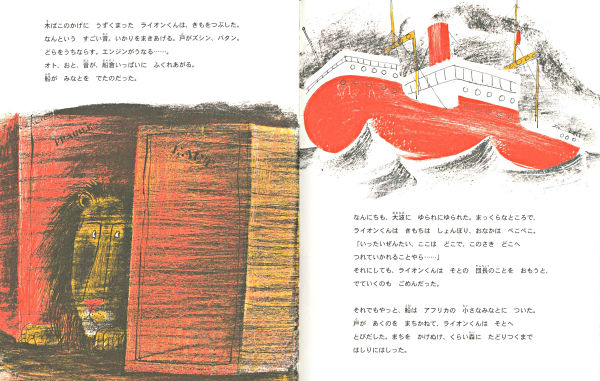 木ばこのかげに　うずくまった　ライオンくんは、きもをつぶした。
なんという　すごい音。いかりをまきあげる。戸がズシン、バタン。
どらをうちならす。エンジンがうなる……。
オト、おと、音が、船倉いっぱいに　ふくれあがる。
船が　みなとを　でたのだった。
なんにちも、大波に　ゆられにゆられた。まっくらなところで、
ライオンくんは　きもちは　しょんぼり、おなかは　ぺこぺこ。
「いったいぜんたい、ここは　どこで、このさき　どこへ
つれていかれることやら……」
それにしても、ライオンくんは　そとの　団長のことを　おもうと、
でていくのも　ごめんだった。
それでもやっと、船は　アフリカの　小さなみなとに　ついた。
戸が　あくのを　まちかねて、ライオンくんは　そとへ
とびだした。まちを　かけぬけ、くらい森に　たどりつくまで
はしりにはしった。